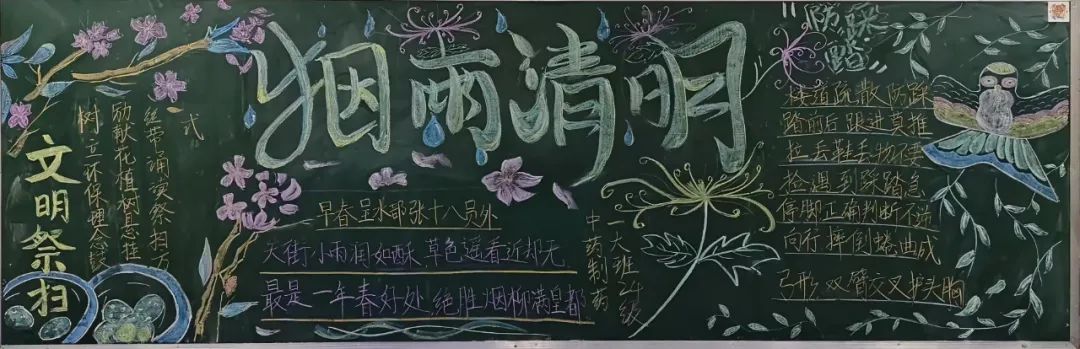 文明祭扫
树立环保理念鼓
励献花植树悬挂
丝带诵读祭扫方
式
烟雨清明
早春呈水部张十八员外
天街小雨润如酥,草色遥看近却无
最是一年春好处,绝胜烟柳满皇都
中药制药
一大班24级
"防踩踏"
楼道疏散防踩
踏前后跟进莫推
拉丢鞋丢物不要
捡遇到踩踏急
停脚正确判断不逆
向行摔倒蜷曲成
弓形双臂交叉护头胸